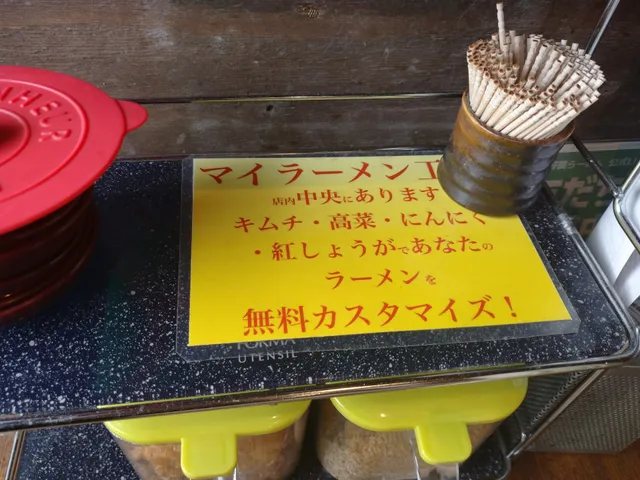 マイラーメン工
店内中央にあります
キムチ・高菜・にんにく
・紅しょうがであなたの
ラーメンを
無料カスタマイズ！
FORMA
UTENSIL